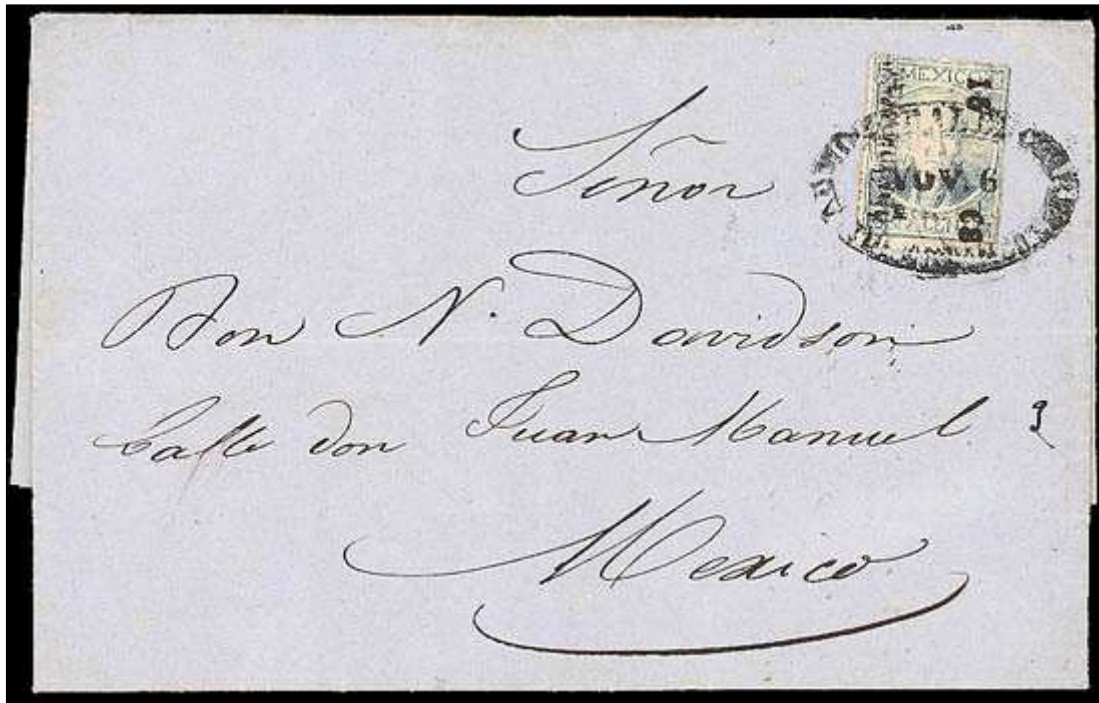 MEXICO
18
NOV. 6
68
Señor
Don N. Davidson
Calle don Juan Manuel 9
Mexico